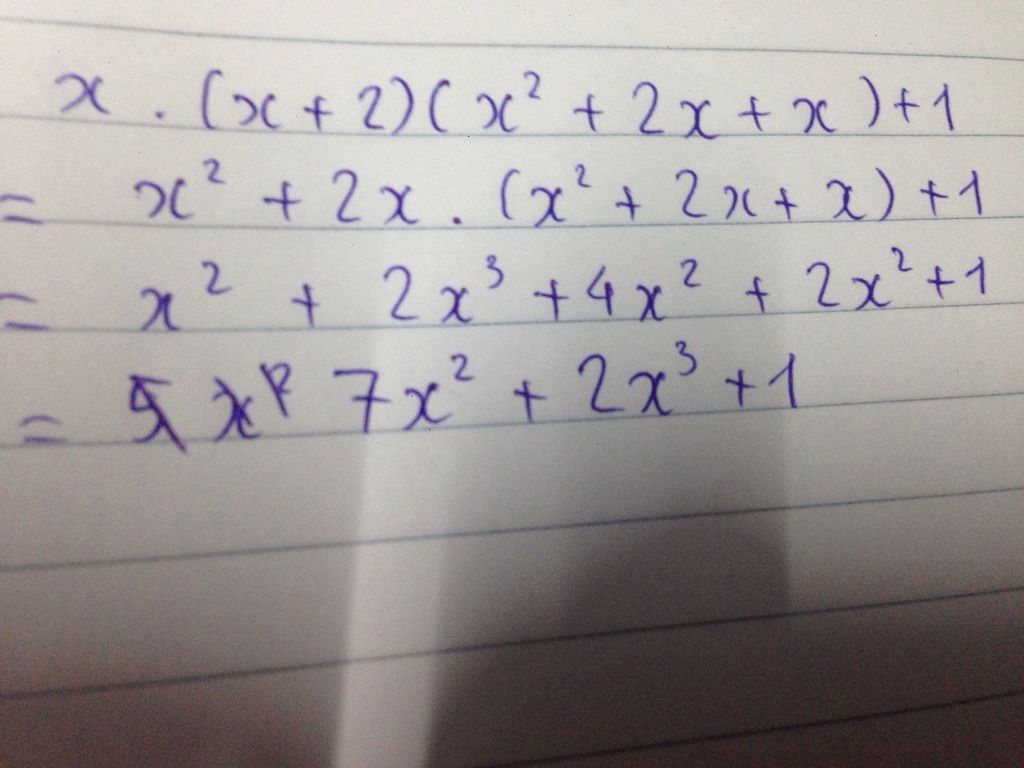 x . (x + 2)(x² + 2x + x) + 1
= x² + 2x . (x² + 2x + x) + 1
= x² + 2x³ + 4x² + 2x² + 1
= 7x² + 2x³ + 1